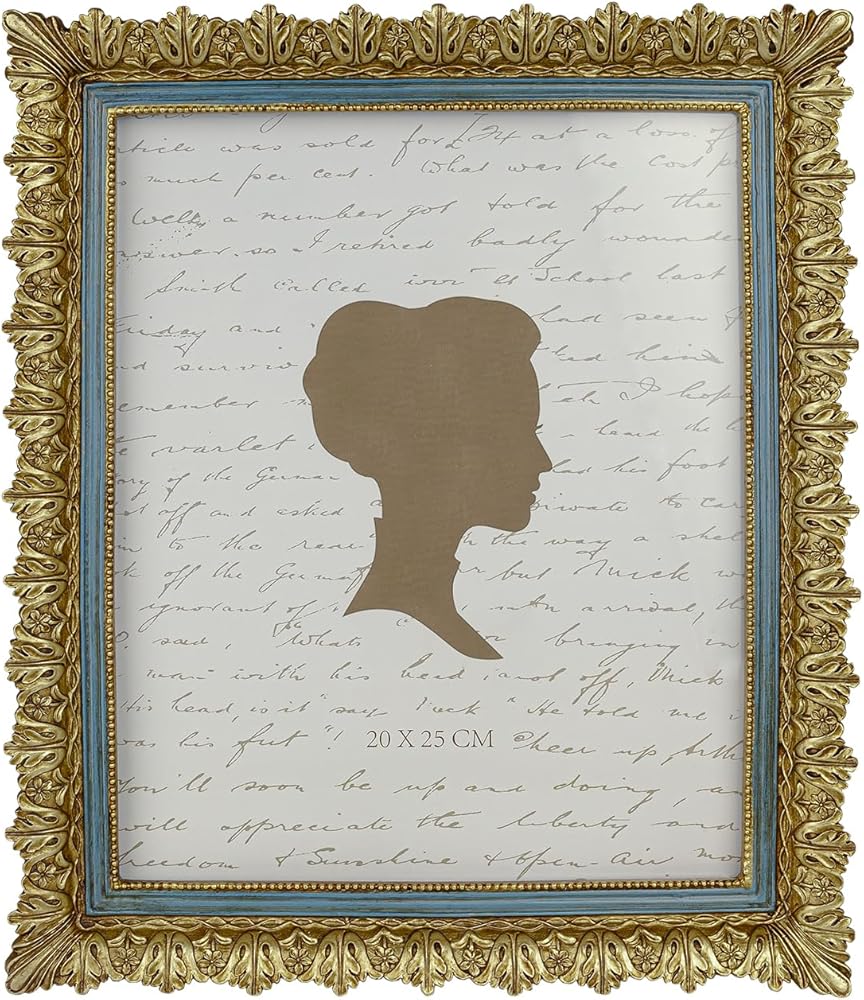 article was sold for £ 24 at a loss of
s much per cent. What was the cost pr
Well, a number got told for the
answer, so I retired badly wounde
Smith called in at School last
Friday and had seen
nd surviv ted him
emember I hop
e varlet heard the
ory of the German had his foot
ot off and asked a private to car
im to the rear the way a shel
k off the German but Mick w
ignorant of on arrival, th
D. said, "Whats bringing in
man with his head not off, Mick
His head, is it" say Mick "He told me i
was his fut"! 20 X 25 CM Cheer up, Arth
You'll soon be up and doing, an
will appreciate the liberty and
freedom & Sunshine & open-Air mo